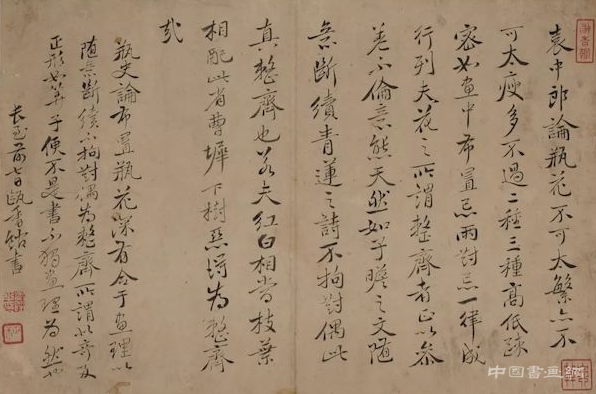 袁中郎論瓶花不可太繁亦不
可太瘦多不過二種三種高低疎
密如畫中布置忌兩對忌一律成
行列夫花之所謂整齊者正以參
差不倫意態天然如子瞻之文隨
意斷續青蓮之詩不拘對偶此
真整齊也若夫紅白相當枝葉
相配此省曹墀下樹惡得為整齊
哉
瓶史論布置瓶花深有合于畫理以
隨意斷續不拘對偶為整齊所謂以奇
正形如算子便不是書不獨畫理為然也
長至前七日甌香館書
中国書画網